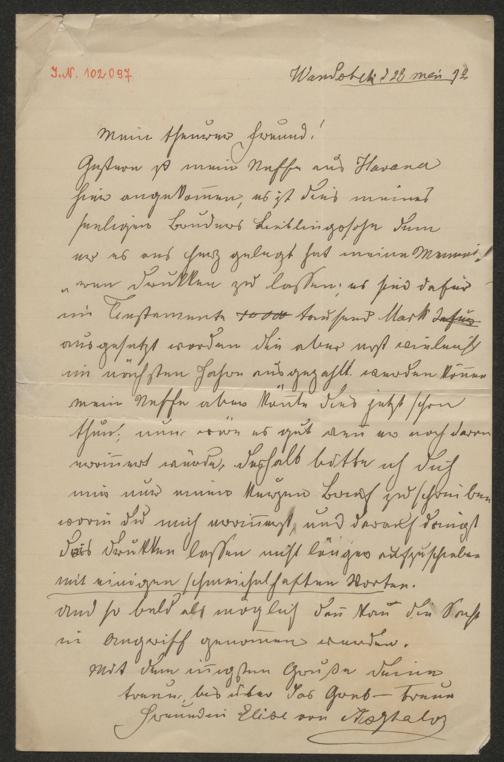 I.N. 102097
Wandsbek d 23 Mai 92
Mein theurer Freund!
Gestern ist mein Neffe aus Havana
hier angekommen, es ist dies meines
seeligen Bruders Lieblingssohn dem
er es ans Herz gelegt hat meine Memoi-
ren drukken zu lassen; es sind dafür
im Testamente tausend Mark dafür
ausgesetzt worden die aber erst vieleicht
im nächsten Jahre ausgezahlt werden können
mein Neffe aber könnte dies jetzt schon
thun; nun wäre es gut wen er noch daran
erinnert würde, deshalb bitte ich dich
mir nur einen kurzen Brief zu schreiben
worin du mich erinnerst, und darauf dringst
das drukken lassen nicht länger aufzuschieben
mit einigen schmeichelhaften Worten.
und so bald als möglich dan kan die Sache
in Angriff genommen werden.
Mit dem innigsten Gruße deine
treue, bis über das Grab – treue
Freundin Elise von